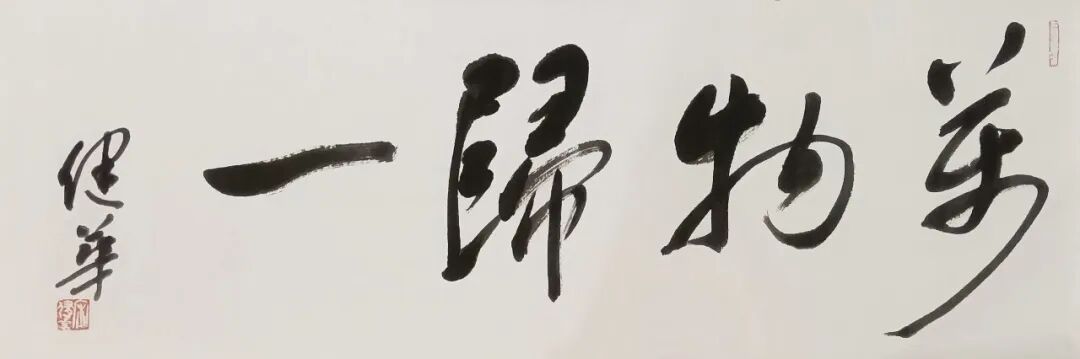 萬物歸一
健華